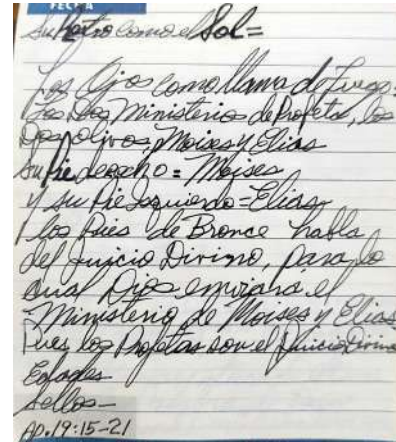 FECHA
Su Rostro como el Sol=
Los Ojos como llama de Fuego=
Los Dos Ministerios de Profeta, los
Dos olivos, Moises y Elias
Su Pie derecho = Moises
y su Pie Izquierdo = Elias
los Pies de Bronce habla
del Juicio Divino, para lo
cual Dios enviará el
Ministerio de Moises y Elias
Pues los Profetas son el Juicio Divino
Edades
Sellos-
AP. 19:15-21